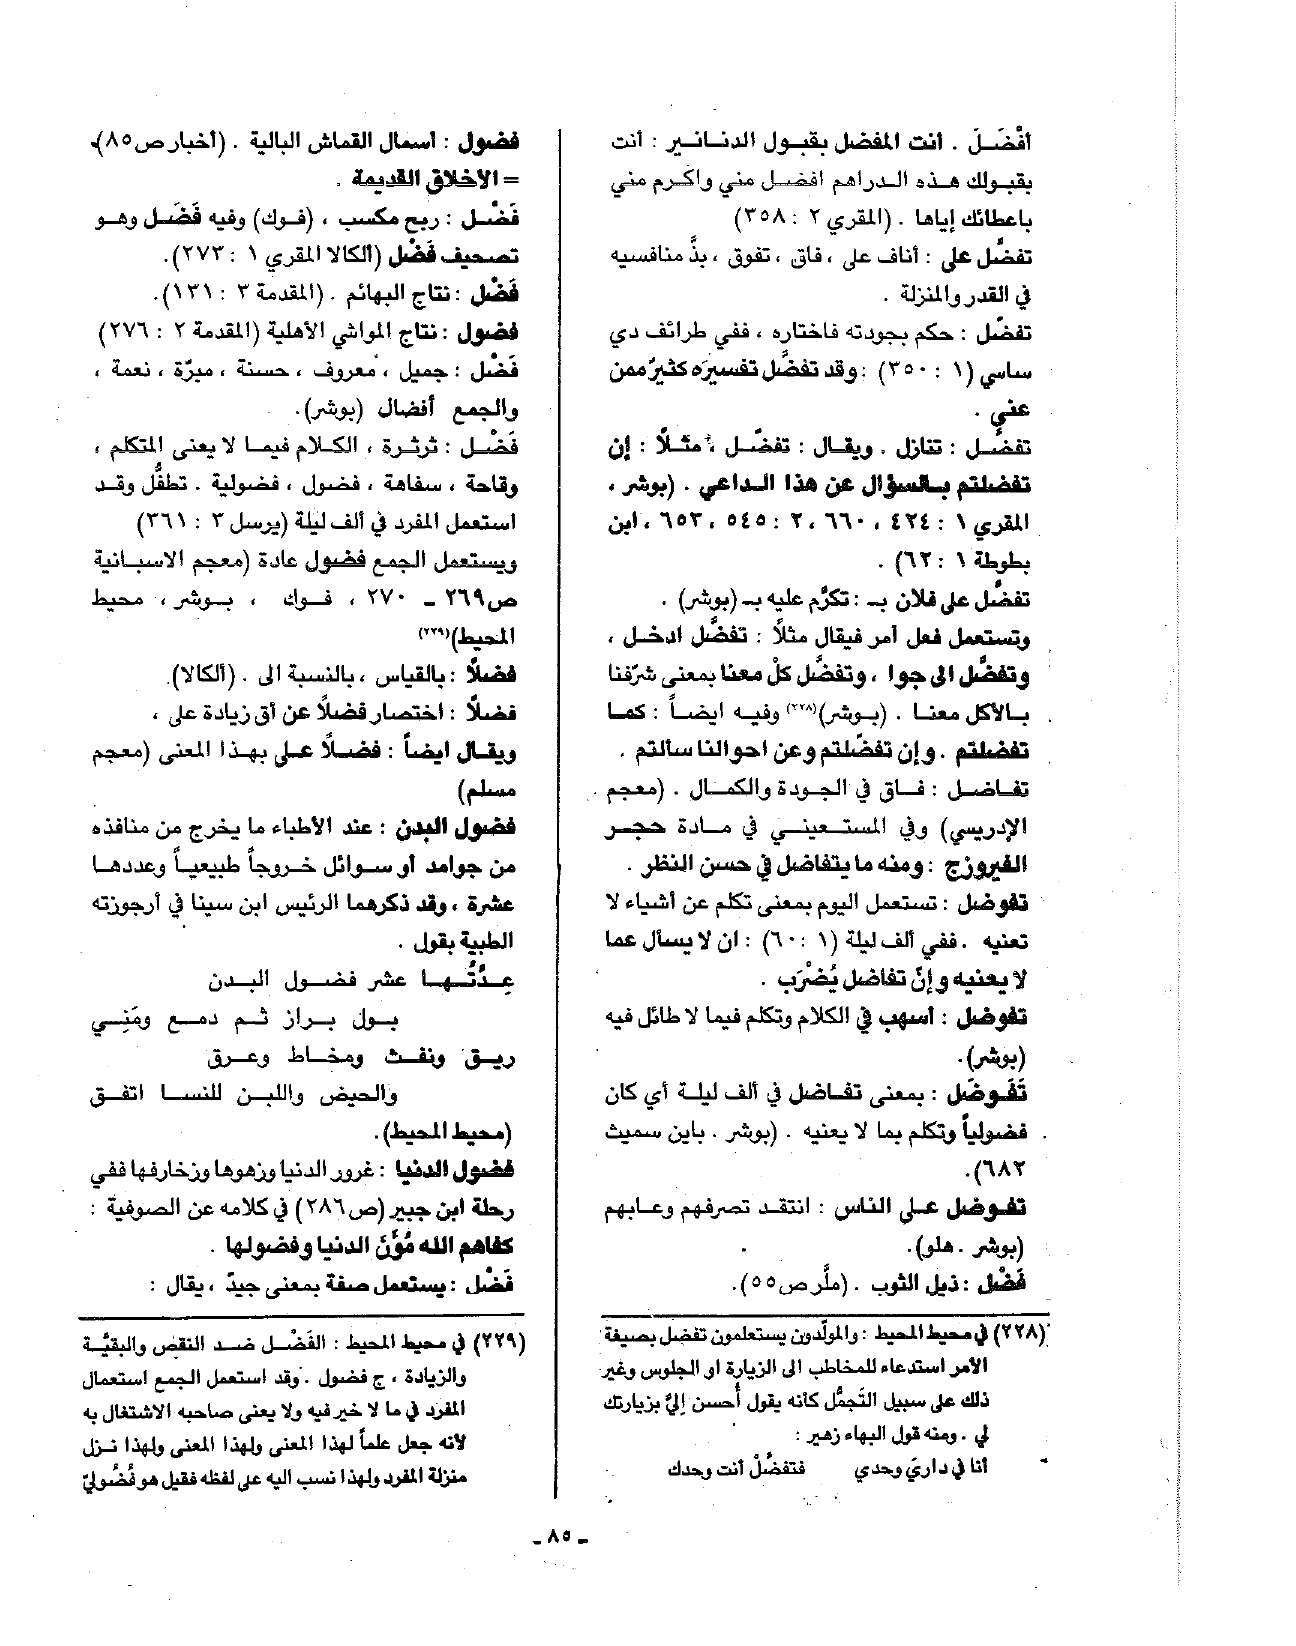 أفْضَلَ . أنت المفضل بقبول الدنانير : أنت
بقبولك هذه الدراهم افضل مني واكرم مني
باعطائك إياها . (المقري ٢ : ٣٥٨)
تفضَّل على : أناف على ، فاق ، تفوق ، بذَّ منافسيه
في القدر والمنزلة .
تفضّل : حكم بجودته فاختاره ، ففي طرائف دي
ساسي (١ : ٣٥٠) : وقد تفضَّل تفسيرَه كثيرٌ ممن
عني .
تفضَّل : تنازل . ويقال : تفضّل ، مثلاً : إن
تفضلتم بالسؤال عن هذا الداعي . (بوشر ،
المقري ١ : ٤٢٤ ، ٦٦٠ ، ٢ : ٥٤٥ ، ٦٥٣ ، ابن
بطوطة ١ : ٦٢) .
تفضَّل على فلان بـ : تكرَّم عليه بـ (بوشر) .
وتستعمل فعل أمر فيقال مثلاً : تفضَّل ادخل ،
وتفضَّل الى جوا ، وتفضَّل كلْ معنا بمعنى شرّفنا
بالأكل معنا . (بوشر)(٢٢٨) وفيه ايضاً : كما
تفضلتم . وإن تفضّلتم وعن احوالنا سألتم .
تفاضل : فاق في الجودة والكمال . (معجم
الإدريسي) وفي المستعيني في مادة حجر
الفيروزج : ومنه ما يتفاضل في حسن النظر .
تفوضل : تستعمل اليوم بمعنى تكلم عن أشياء لا
تعنيه . ففي ألف ليلة (١ : ٦٠) : ان لا يسأل عما
لا يعنيه وإنْ تفاضل يُضْرَب .
تفوضل : أسهب في الكلام وتكلم فيما لا طائل فيه
(بوشر).
تَفَوضَل : بمعنى تفاضل في ألف ليلة أي كان
فضولياً وتكلم بما لا يعنيه . (بوشر . باين سميث
٦٨٢).
تفوضل على الناس : انتقد تصرفهم وعابهم
(بوشر . هلو).
فَضْل : ذيل الثوب . (ملَّر ص٥٥).
(٢٢٨) في محيط المحيط : والمولّدون يستعلمون تفضل بصيغة
الأمر استدعاء للمخاطب الى الزيارة او الجلوس وغير
ذلك على سبيل التَجمُّل كأنه يقول أحسن إليَّ بزيارتك
لي . ومنه قول البهاء زهير :
أنا في داريَ وحدي فتفضَّلْ أنت وحدك
فضول : أسمال القماش البالية . (أخبار ص٨٥).
= الأخلاق القديمة .
فَضْل : ربح مكسب ، (فوك) وفيه فَضَل وهو
تصحيف فَضْل (ألكالا المقري ١ : ٢٧٣).
فَضْل : نتاج البهائم . (المقدمة ٣ : ١٣١).
فضول : نتاج المواشي الأهلية (المقدمة ٢ : ٢٧٦)
فَضْل : جميل ، معروف ، حسنة ، مبرّة ، نعمة ،
والجمع أفضال (بوشر).
فَضْل : ثرثرة ، الكلام فيما لا يعنى المتكلم ،
وقاحة ، سفاهة ، فضول ، فضولية . تطفُّل وقد
استعمل المفرد في ألف ليلة (يرسل ٣ : ٣٦١)
ويستعمل الجمع فضول عادة (معجم الاسبانية
ص٢٦٩ - ٢٧٠ ، فوك ، بوشر ، محيط
المحيط)(٢٢٩)
فضلاً : بالقياس ، بالنسبة الى . (ألكالا).
فضلاً : اختصار فضلاً عن أق زيادة على ،
ويقال ايضاً : فضلاً على بهذا المعنى (معجم
مسلم)
فضول البدن : عند الأطباء ما يخرج من منافذه
من جوامد أو سوائل خروجاً طبيعياً وعددها
عشرة ، وقد ذكرها الرئيس ابن سينا في أرجوزته
الطبية بقول .
عِدَّتُها عشر فضول البدن
بول براز ثم دمع ومَنِي
ريق ونفث ومخاط وعرق
والحيض واللبن للنسا اتفق
(محيط المحيط).
فضول الدنيا : غرور الدنيا وزهوها وزخارفها ففي
رحلة ابن جبير (ص٢٨٦) في كلامه عن الصوفية :
كفاهم الله مُؤَنَ الدنيا وفضولها .
فَضْل : يستعمل صفة بمعنى جيدّ ، يقال :
(٢٢٩) في محيط المحيط : الفَضْل ضد النقص والبقيَّة
والزيادة ، ج فضول . وقد استعمل الجمع استعمال
المفرد في ما لا خير فيه ولا يعنى صاحبه الاشتغال به
لأنه جعل علماً لهذا المعنى ولهذا المعنى ولهذا نزل
منزلة المفرد ولهذا نسب اليه على لفظه فقيل هو فُضُوليّ
ـ ٨٥ ـ